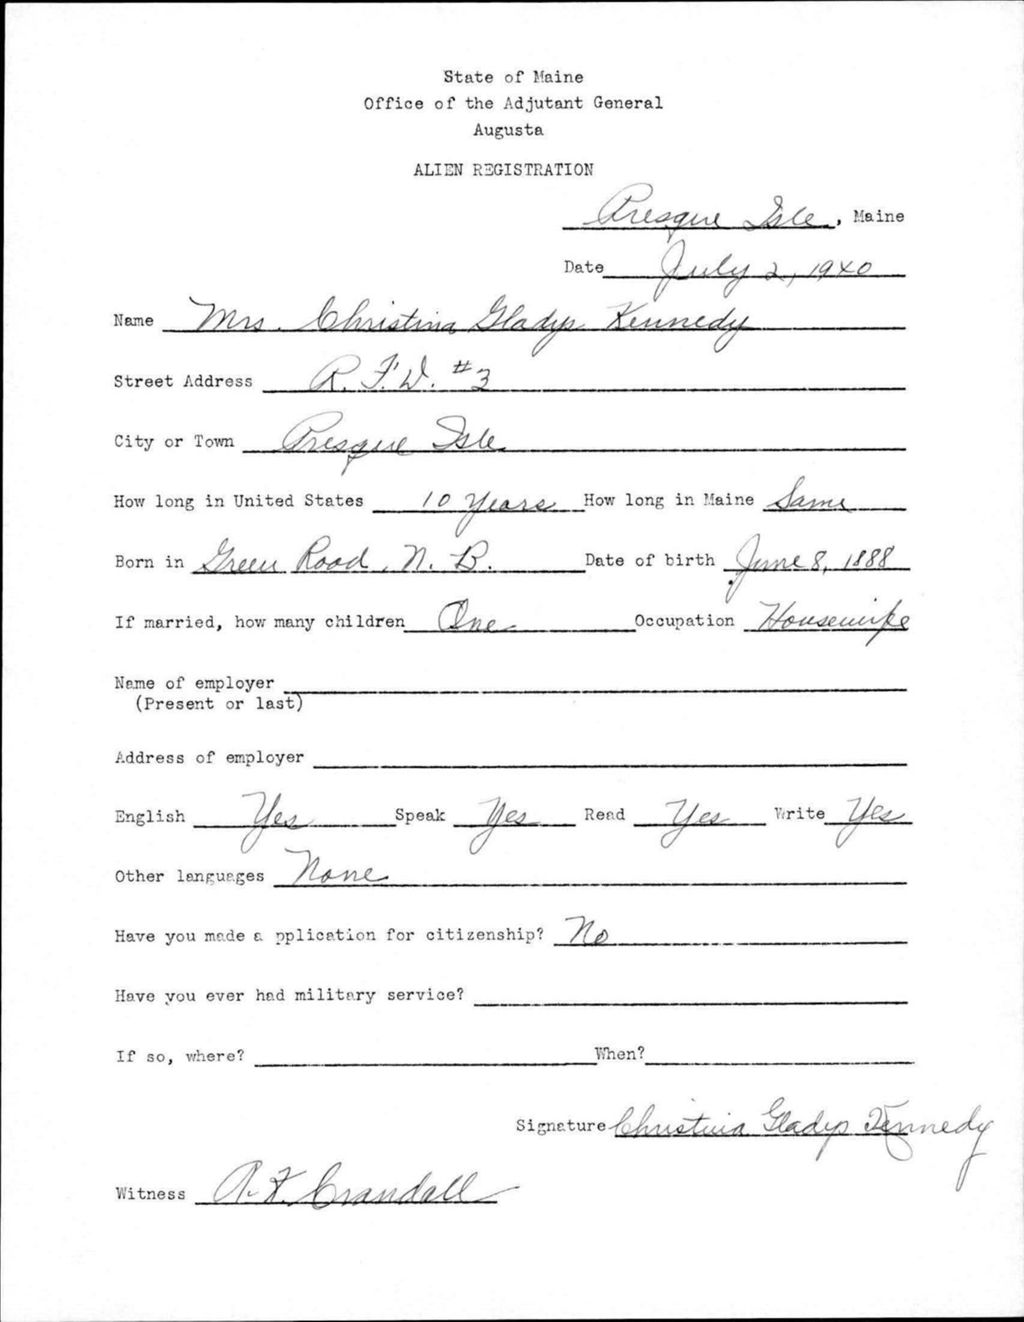 State of Maine
Office of the Adjutant General
Augusta
ALIEN REGISTRATION
Presque Isle, Maine
Date July 2, 1940
Name Mrs. Christina Gladys Kennedy
Street Address R. F. D. #3
City or Town Presque Isle
How long in United States 10 Years How long in Maine Same
Born in Green Road, N. B. Date of birth June 8, 1888
If married, how many children One Occupation Housewife
Name of employer
(Present or last)
Address of employer
English Yes Speak Yes Read Yes Write Yes
Other languages None
Have you made a pplication for citizenship? No
Have you ever had military service?
If so, where? When?
Signature Christina Gladys Kennedy
Witness A. F. Crandall